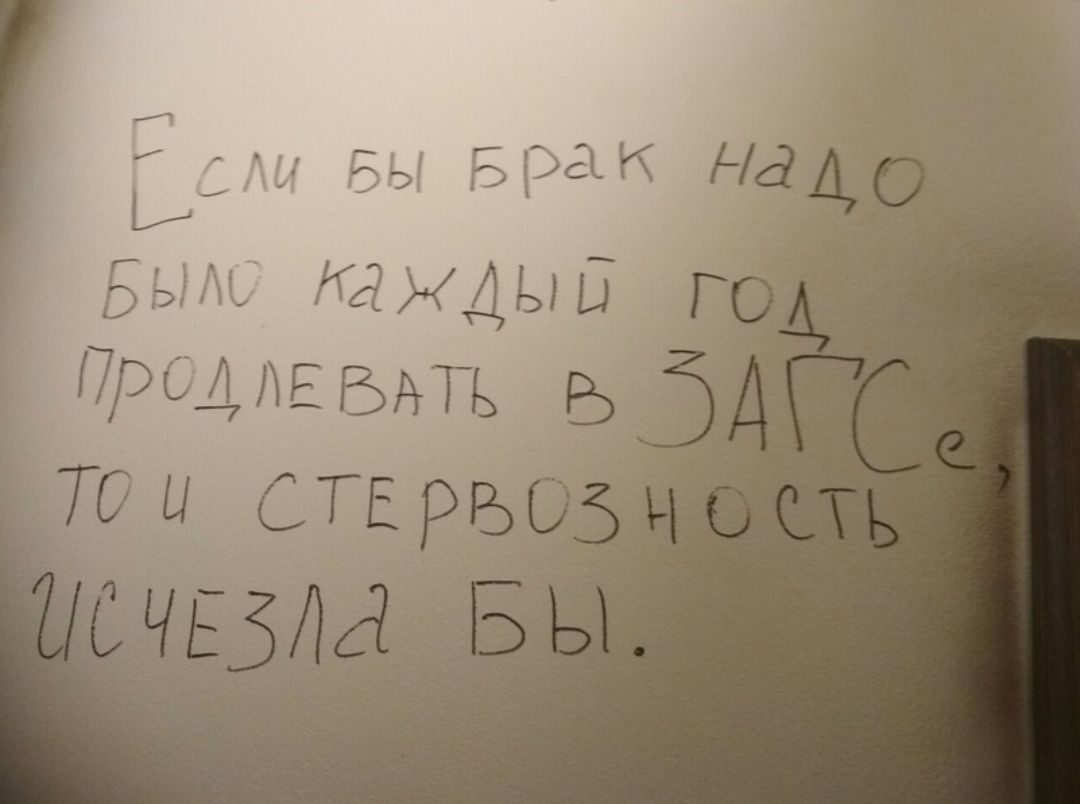 Если бы брак надо
было каждый год
продлевать в ЗАГСе,
то и стервозность
исчезла бы.